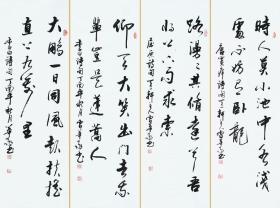 時人莫小池中水淺
處不妨有卧龍
路漫々其脩遠兮吾
將上下而求索
屈原詩句丁酉
仰天大笑出門去我
輩豈是蓬蒿人
李白詩句丁酉年秋月
大鵬一日同風起扶搖
直上九萬里
李白詩句丁酉年秋月